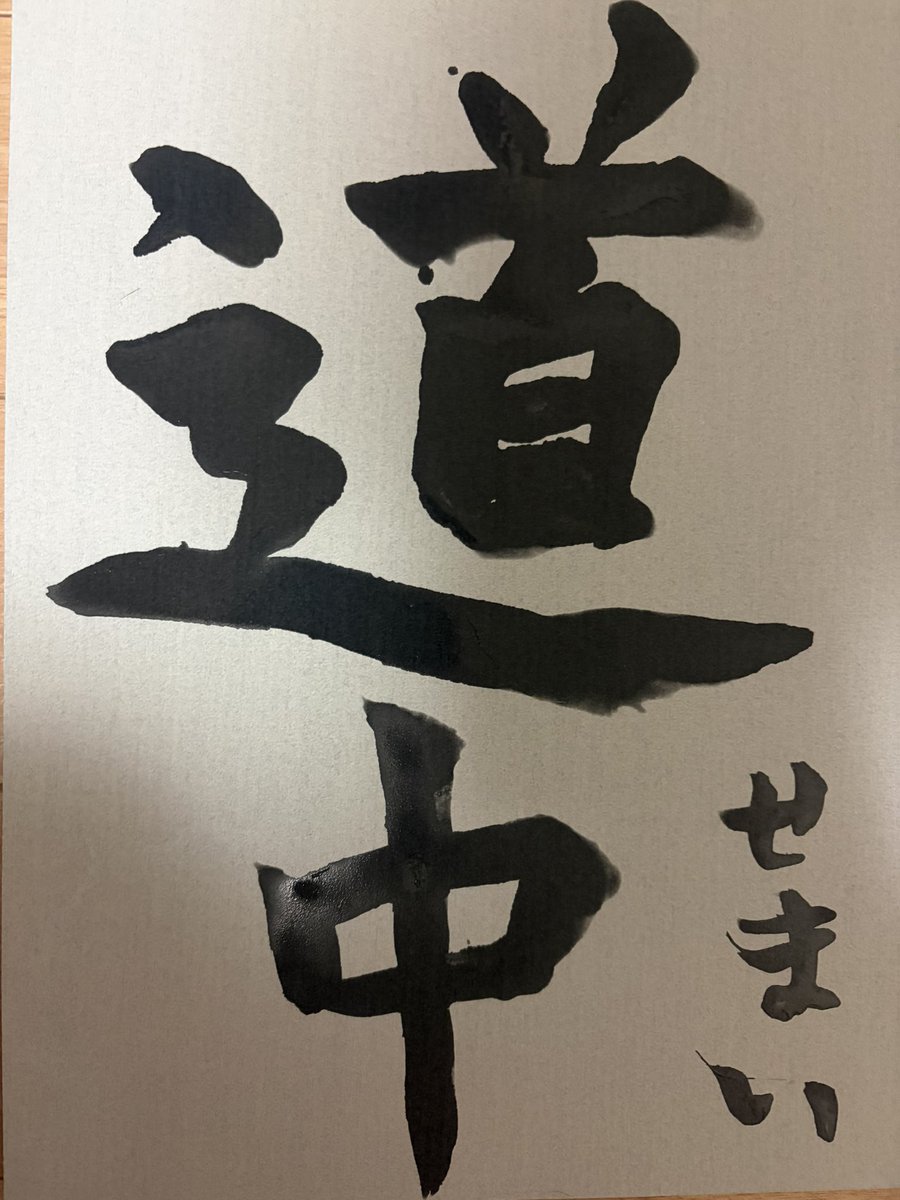 道中
せまい